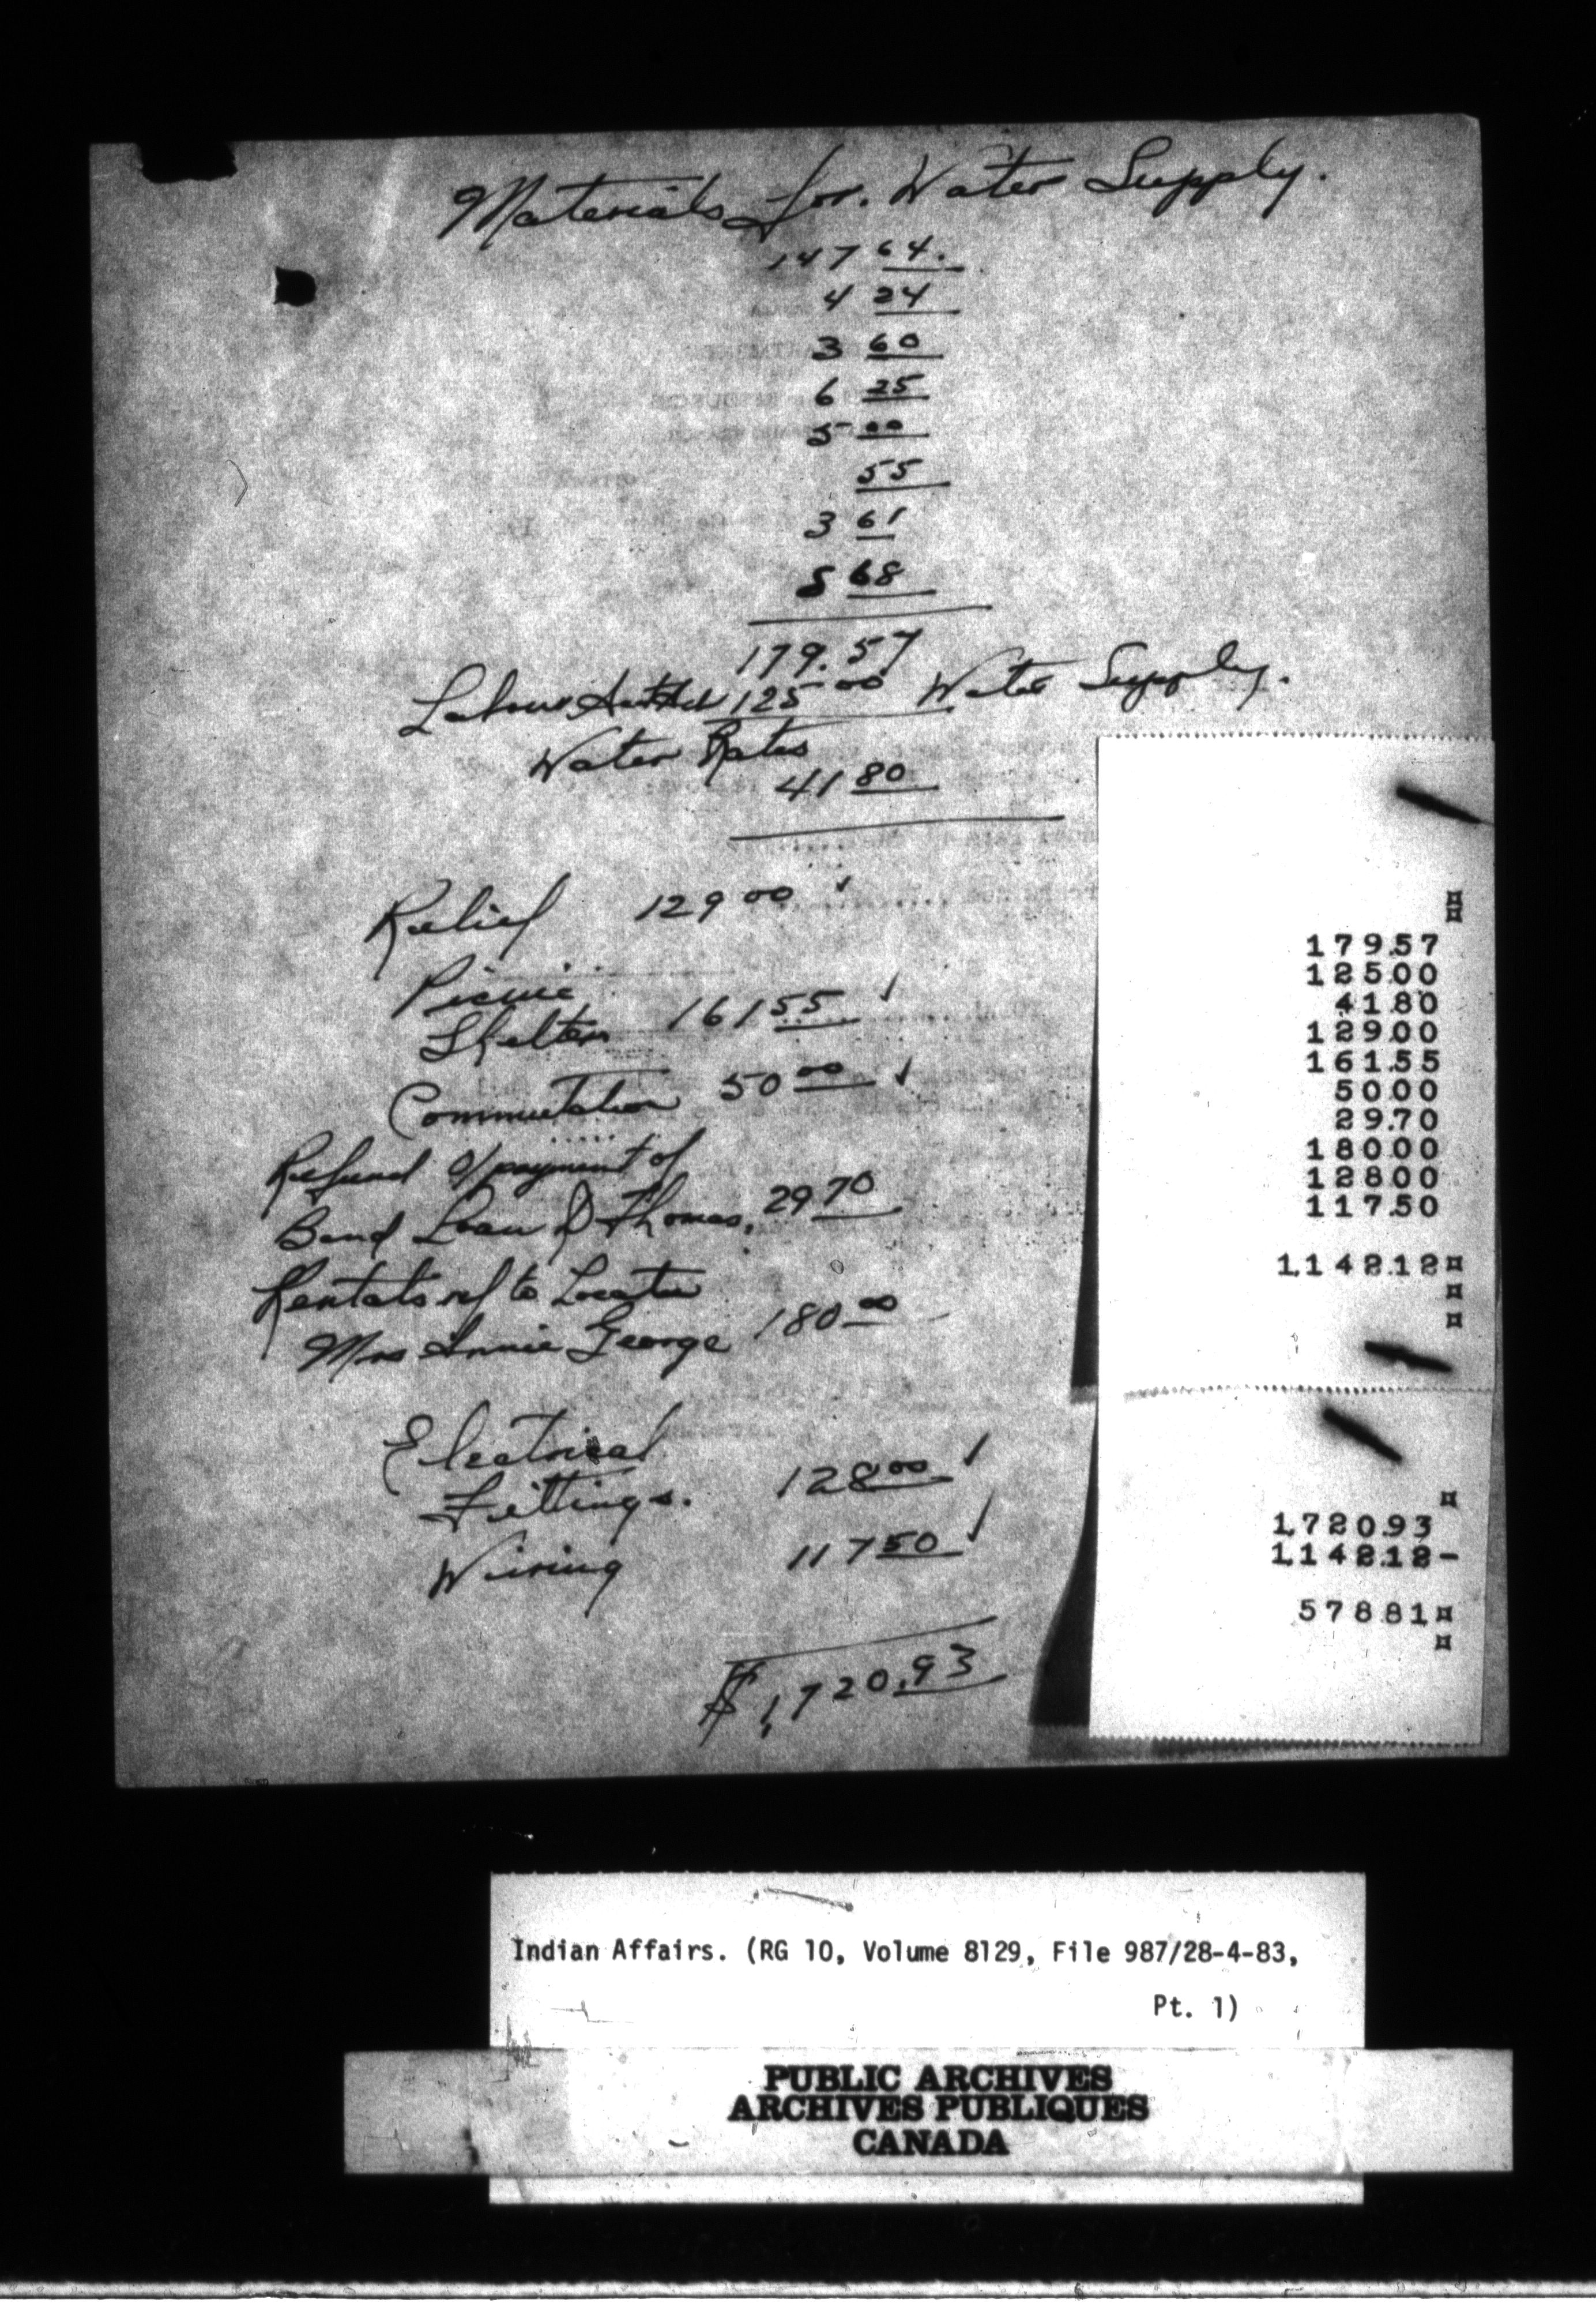 Materials for. Water Supply.
147 64.
4 24
3 60
6 25
5 00
55
3 61
8 68
179.57
Labour 125 00 Water Supply.
Water Rates
41 80
Relief 129 00 ✓
Picnic
Shelter 161 55 ✓
Commutation 50 00 ✓
Refund O/payment of
Band Loan D Thomas, 29 70
Rentals ref to Locatee
Mrs Annie George 180 00
Electrical
Fittings. 128 00 ✓
Wiring 117 50 ✓
$1,720.93
179.57
125.00
41.80
129.00
161.55
50.00
29.70
180.00
128.00
117.50
1,142.12
1,720.93
1,142.12-
578.81
Indian Affairs. (RG 10, Volume 8129, File 987/28-4-83,
Pt. 1)
PUBLIC ARCHIVES
ARCHIVES PUBLIQUES
CANADA